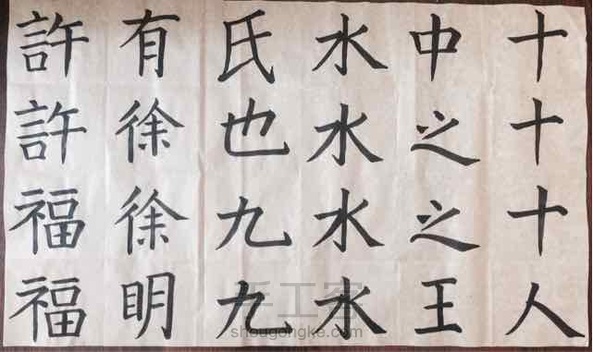 十十十人
中之之王
水水水水
氏也九九
有徐徐眀
許許福福
手工客
shougongke.com